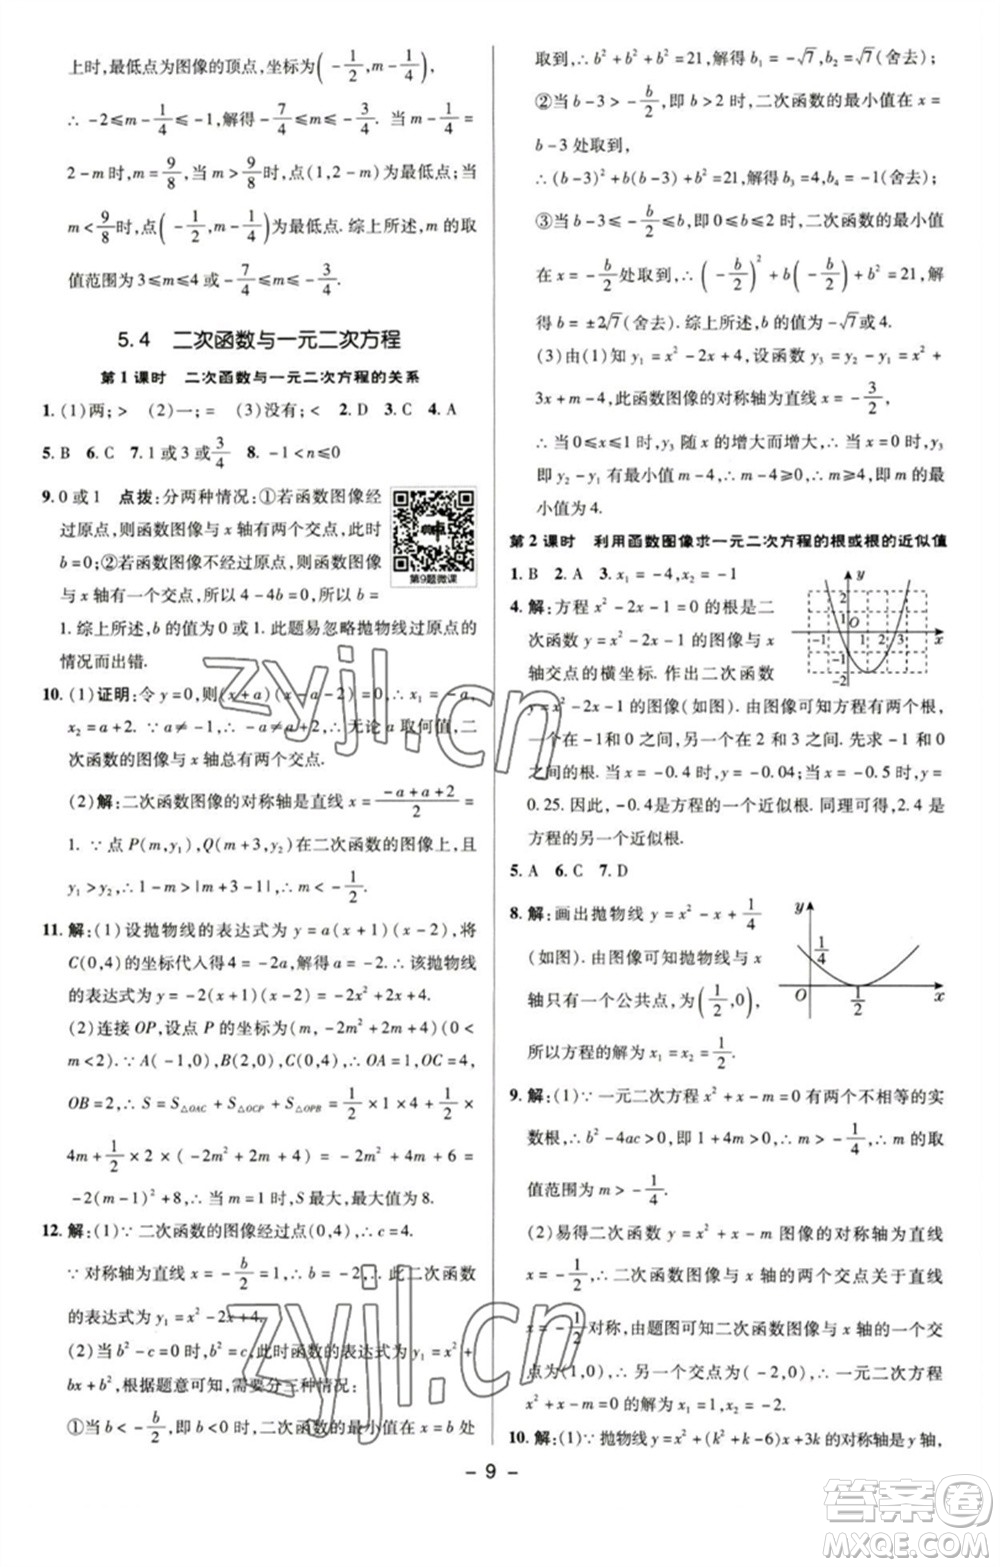 上时,最低点为图像的顶点,坐标为(-1/2,m-1/4),
∴ -2≤m-1/4≤-1,解得-7/4≤m≤-3/4. 当 m-1/4=
2-m 时,m=9/8,当 m>9/8时,点(1,2-m)为最低点;当
m<9/8时,点(-1/2,m-1/4)为最低点. 综上所述,m 的取
值范围为 3≤m≤4 或-7/4≤m≤-3/4.
5.4 二次函数与一元二次方程
第 1 课时 二次函数与一元二次方程的关系
1. (1)两;> (2)一;= (3)没有;< 2. D 3. C 4. A
5. B 6. C 7. 1 或 3 或3/4 8. -1<n≤0
9. 0 或 1 点拨:分两种情况:①若函数图像经
过原点,则函数图像与 x 轴有两个交点,此时
b=0;②若函数图像不经过原点,则函数图像
与 x 轴有一个交点,所以 4-4b=0,所以 b=
第9题微课
1. 综上所述,b 的值为 0 或 1. 此题易忽略抛物线过原点的
情况而出错.
10. (1)证明:令 y=0,则(x+a)(x-a-2)=0,∴ x₁=-a,
x₂=a+2. ∵ a≠-1,∴ -a≠a+2,∴ 无论 a 取何值,二
次函数的图像与 x 轴总有两个交点.
(2)解:二次函数图像的对称轴是直线 x=(-a+a+2)/2=
1. ∵ 点 P(m,y₁),Q(m+3,y₂)在二次函数的图像上,且
y₁>y₂,∴ 1-m>|m+3-1|,∴ m<-1/2.
11. 解:(1)设抛物线的表达式为 y=a(x+1)(x-2),将
C(0,4)的坐标代入得 4=-2a,解得 a=-2. ∴ 该抛物线
的表达式为 y=-2(x+1)(x-2)=-2x²+2x+4.
(2)连接 OP,设点 P 的坐标为(m,-2m²+2m+4)(0<
m<2). ∵ A(-1,0),B(2,0),C(0,4),∴ OA=1,OC=4,
OB=2,∴ S=S△OAC+S△OCP+S△OPB=1/2×1×4+1/2×
4m+1/2×2×(-2m²+2m+4)=-2m²+4m+6=
-2(m-1)²+8,∴ 当 m=1 时,S 最大,最大值为 8.
12. 解:(1)∵ 二次函数的图像经过点(0,4),∴ c=4.
∵ 对称轴为直线 x=-b/2=1,∴ b=-2,∴ 此二次函数
的表达式为 y₁=x²-2x+4.
(2)当 b²-c=0 时,b²=c,此时函数的表达式为 y₁=x²+
bx+b²,根据题意可知,需要分三种情况:
①当 b<-b/2,即 b<0 时,二次函数的最小值在 x=b 处
取到,∴ b²+b²+b²=21,解得 b₁=-√7,b₂=√7(舍去);
②当 b-3>-b/2,即 b>2 时,二次函数的最小值在 x=
b-3 处取到,
∴ (b-3)²+b(b-3)+b²=21,解得 b₃=4,b₄=-1(舍去);
③当 b-3≤-b/2≤b,即 0≤b≤2 时,二次函数的最小值
在 x=-b/2处取到,∴ (-b/2)²+b(-b/2)+b²=21,解
得 b=±2√7(舍去). 综上所述,b 的值为-√7或 4.
(3)由(1)知,二次函数的表达式为 y₁=x²-2x+4,设函数 y₃=y₂-y₁=x²+
3x+m-4,此函数图像的对称轴为直线 x=-3/2,
∴ 当 0≤x≤1 时,y₃ 随 x 的增大而增大,∴ 当 x=0 时,y₃
即 y₂-y₁ 有最小值 m-4,∴ m-4≥0,∴ m≥4,即 m 的最小
值为 4.
第 2 课时 利用函数图像求一元二次方程的根或根的近似值
1. B 2. A 3. x₁=-4,x₂=-1
4. 解:方程 x²-2x-1=0 的根是二
次函数 y=x²-2x-1 的图像与 x
轴交点的横坐标. 作出二次函数
y=x²-2x-1 的图像(如图). 由图像可知方程有两个根,
一个在-1 和 0 之间,另一个在 2 和 3 之间. 先求-1 和 0
之间的根. 当 x=-0.4 时,y=-0.04;当 x=-0.5 时,y=
0.25. 因此,-0.4 是方程的一个近似根. 同理可得,2.4 是
方程的另一个近似根.
y
2
1
-1 O 1 2 3 x
-1
-2
5. A 6. C 7. D
8. 解:画出抛物线 y=x²-x+1/4
(如图). 由图像可知抛物线与 x
轴只有一个公共点,为(1/2,0),
所以方程的解为 x₁=x₂=1/2.
y
1/4
O 1/2 x
9. 解:(1)∵ 一元二次方程 x²+x-m=0 有两个不相等的实
数根,∴ b²-4ac>0,即 1+4m>0,∴ m>-1/4,∴ m 的取
值范围为 m>-1/4.
(2)易得二次函数 y=x²+x-m 图像的对称轴为直线
x=-1/2,∴ 二次函数图像与 x 轴的两个交点关于直线
x=-1/2对称,由题图可知二次函数图像与 x 轴的一个交
点为(1,0),∴ 另一个交点为(-2,0),∴ 一元二次方程
x²+x-m=0 的解为 x₁=1,x₂=-2.
10. 解:(1)∵ 抛物线 y=x²+(k²+k-6)x+3k 的对称轴是 y 轴,
- 9 -
zyjl.cn
zyjl.cn
答案圈
MXQE.COM